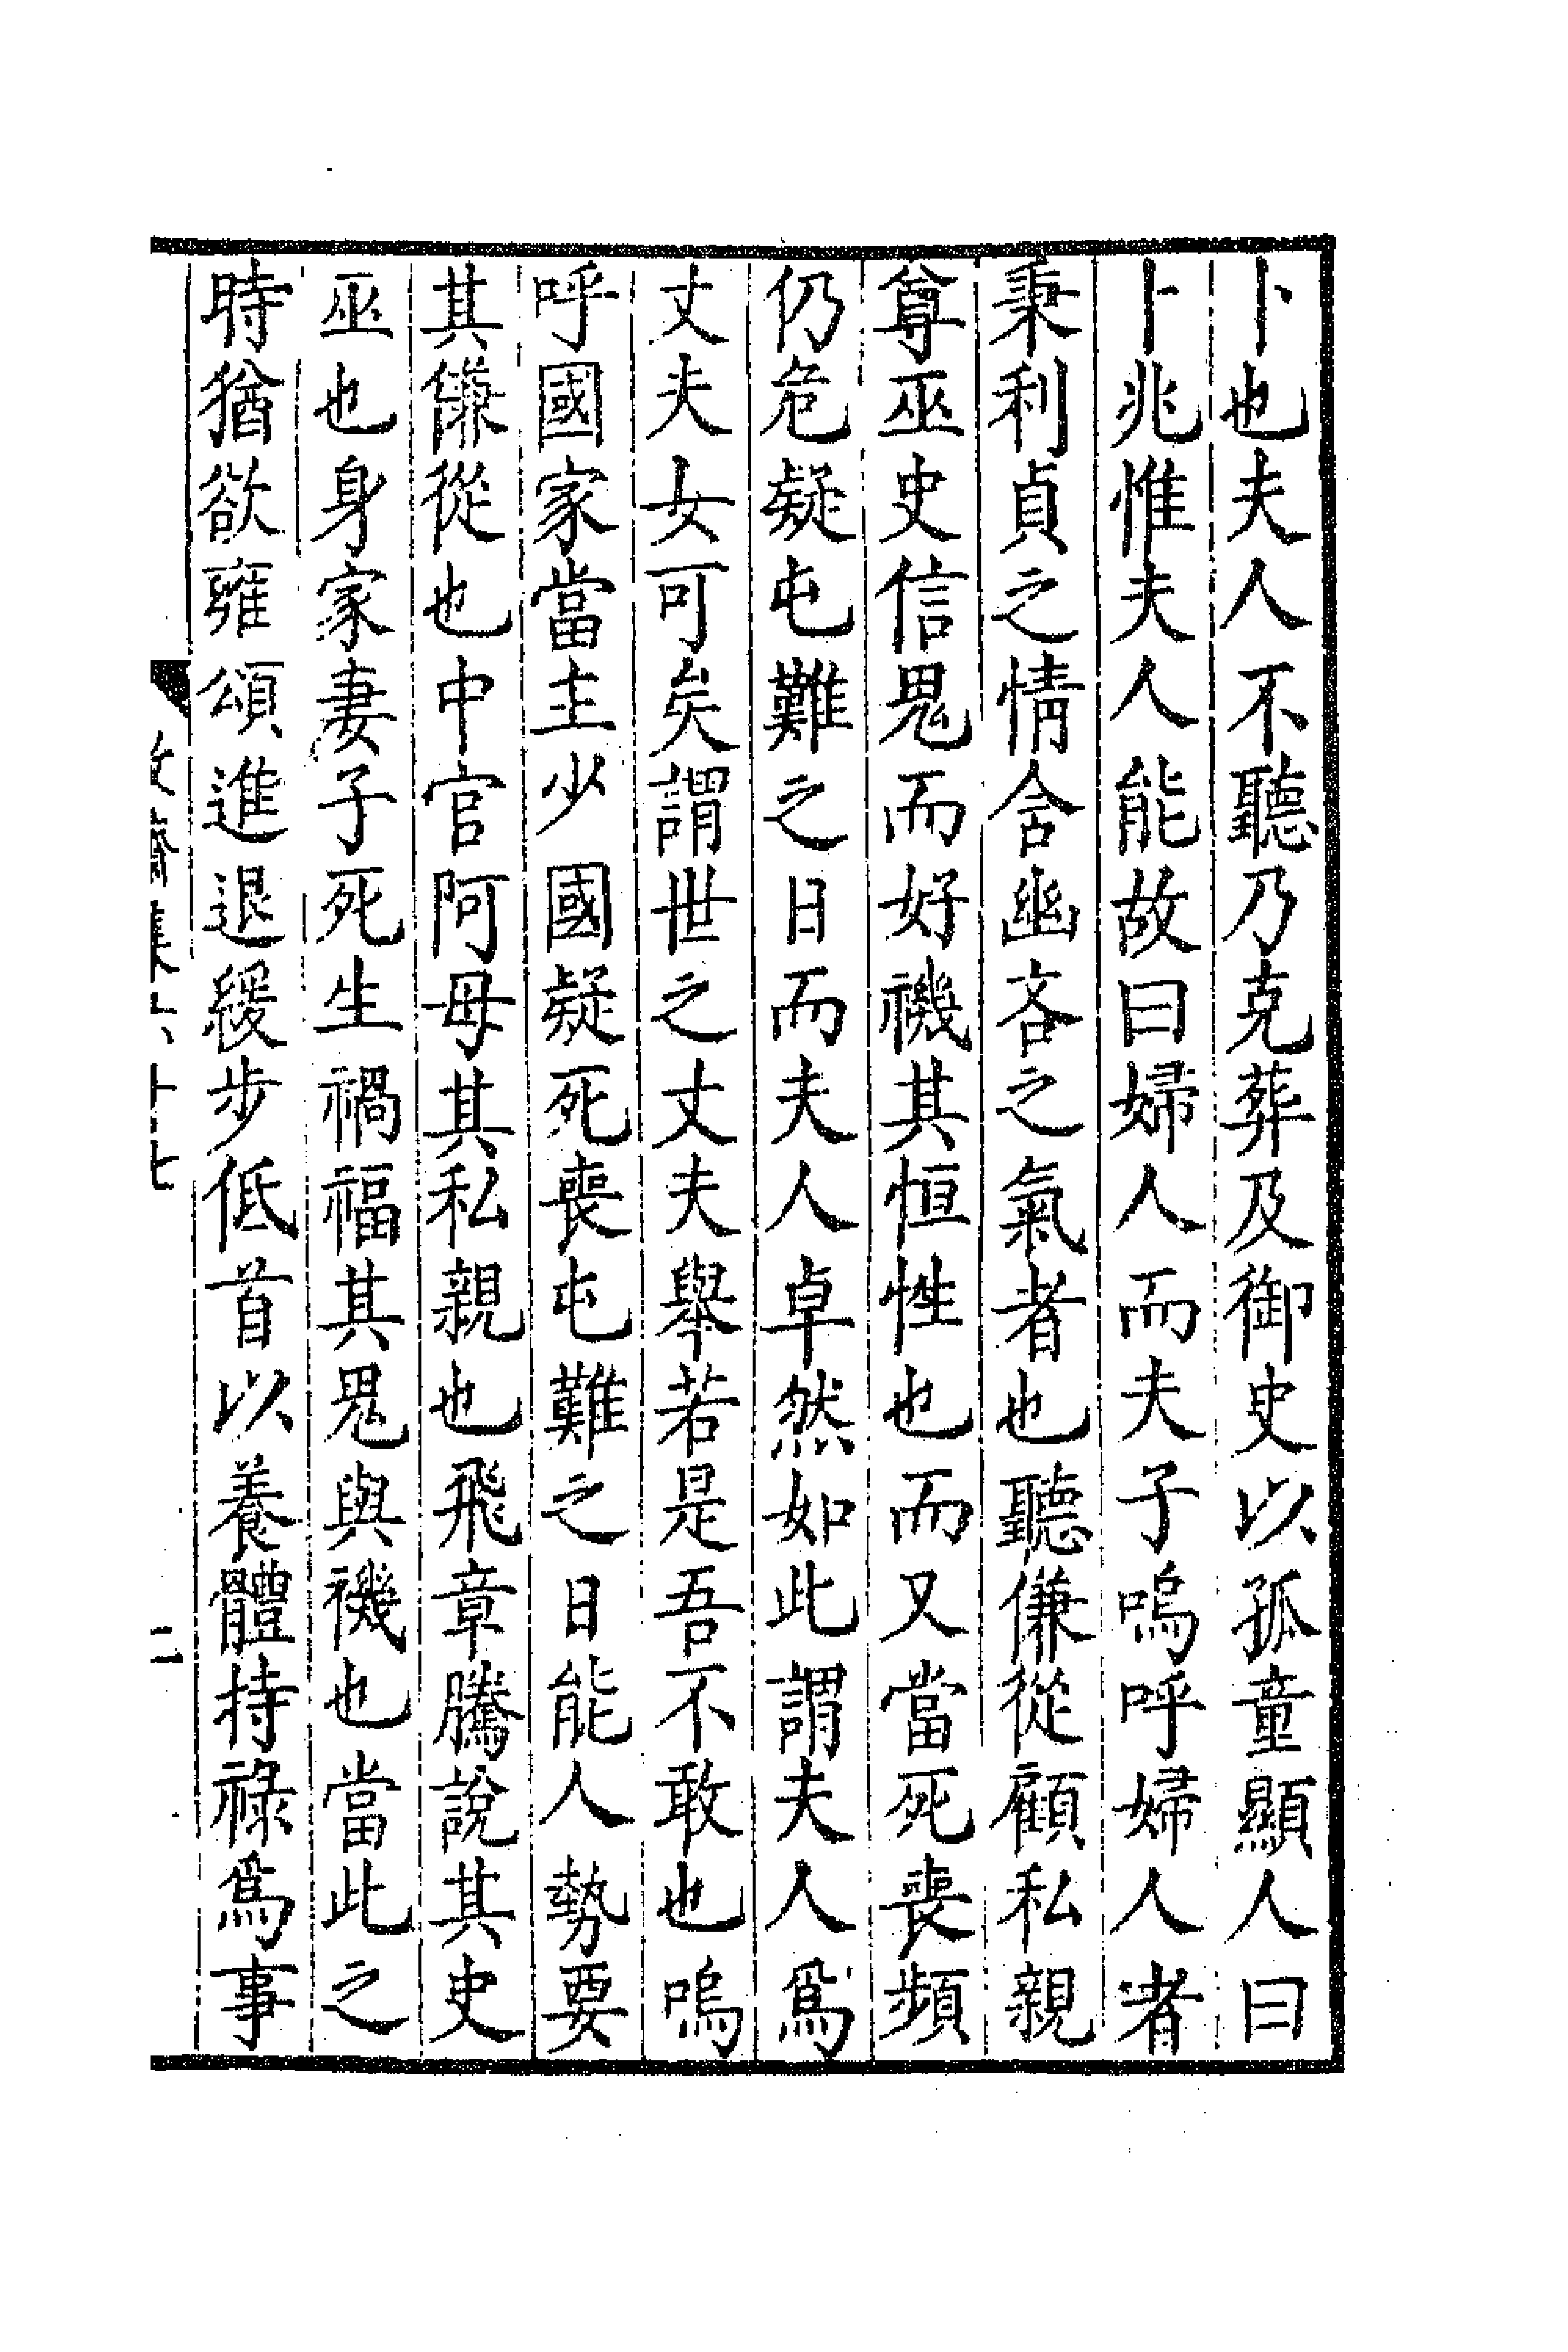 卜也夫人不聽乃克葬及御史以孤童顯人曰
卜兆惟夫人能故曰婦人而夫子嗚呼婦人者
秉利貞之情含幽吝之氣者也聽傔從顧私親
尊巫史信鬼而好禨其恒性也而又當死喪頻
仍危疑屯難之日而夫人卓然如此謂夫人爲
丈夫女可矣謂世之丈夫舉若是吾不敢也嗚
呼國家當主少國疑死喪屯難之日能人勢要
其傔從也中官阿母其私親也飛章騰說其史
巫也身家妻子死生禍福其鬼與禨也當此之
時猶欲雍頌進退緩步低首以養體持祿爲事
牧齋集六十七
二